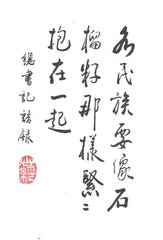 各民族要像石
榴籽那樣緊緊
抱在一起
總書記語錄